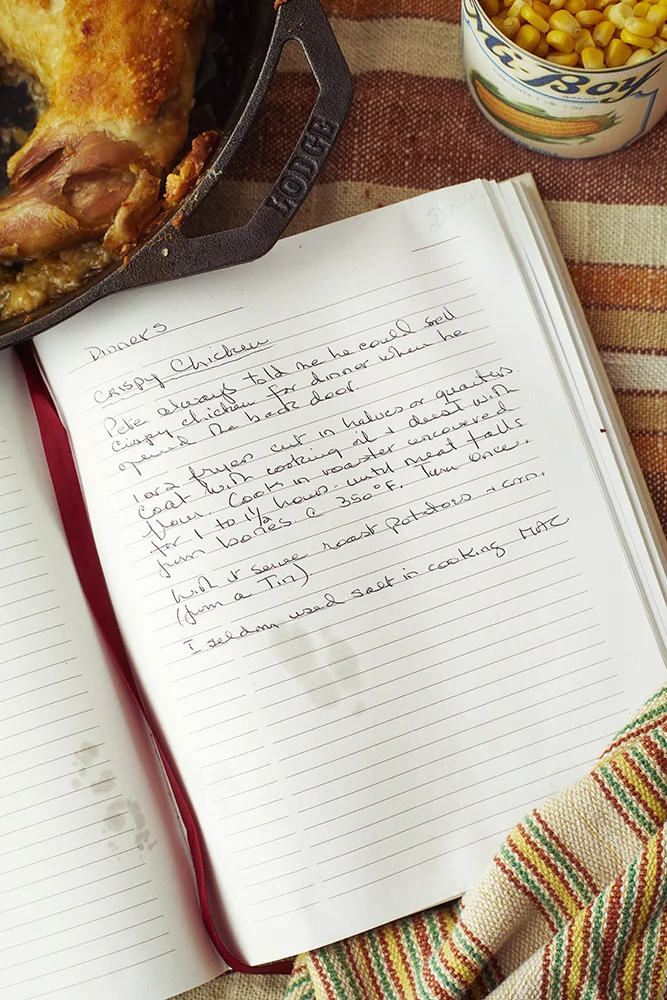 LODGE
Mi-Boy
Dinners
Crispy Chicken
Pete always told me he could smell
crispy chicken for dinner when he
opened the back door
1 or 2 fryers cut in halves or quarters
Coat with cooking oil + dust with
flour. Cook in roaster uncovered
for 1 to 1 1/2 hours until meat falls
from bones @ 350°F. Turn once.
With it serve roast potatoes + corn.
(from a Tin)
I seldom used salt in cooking MAC